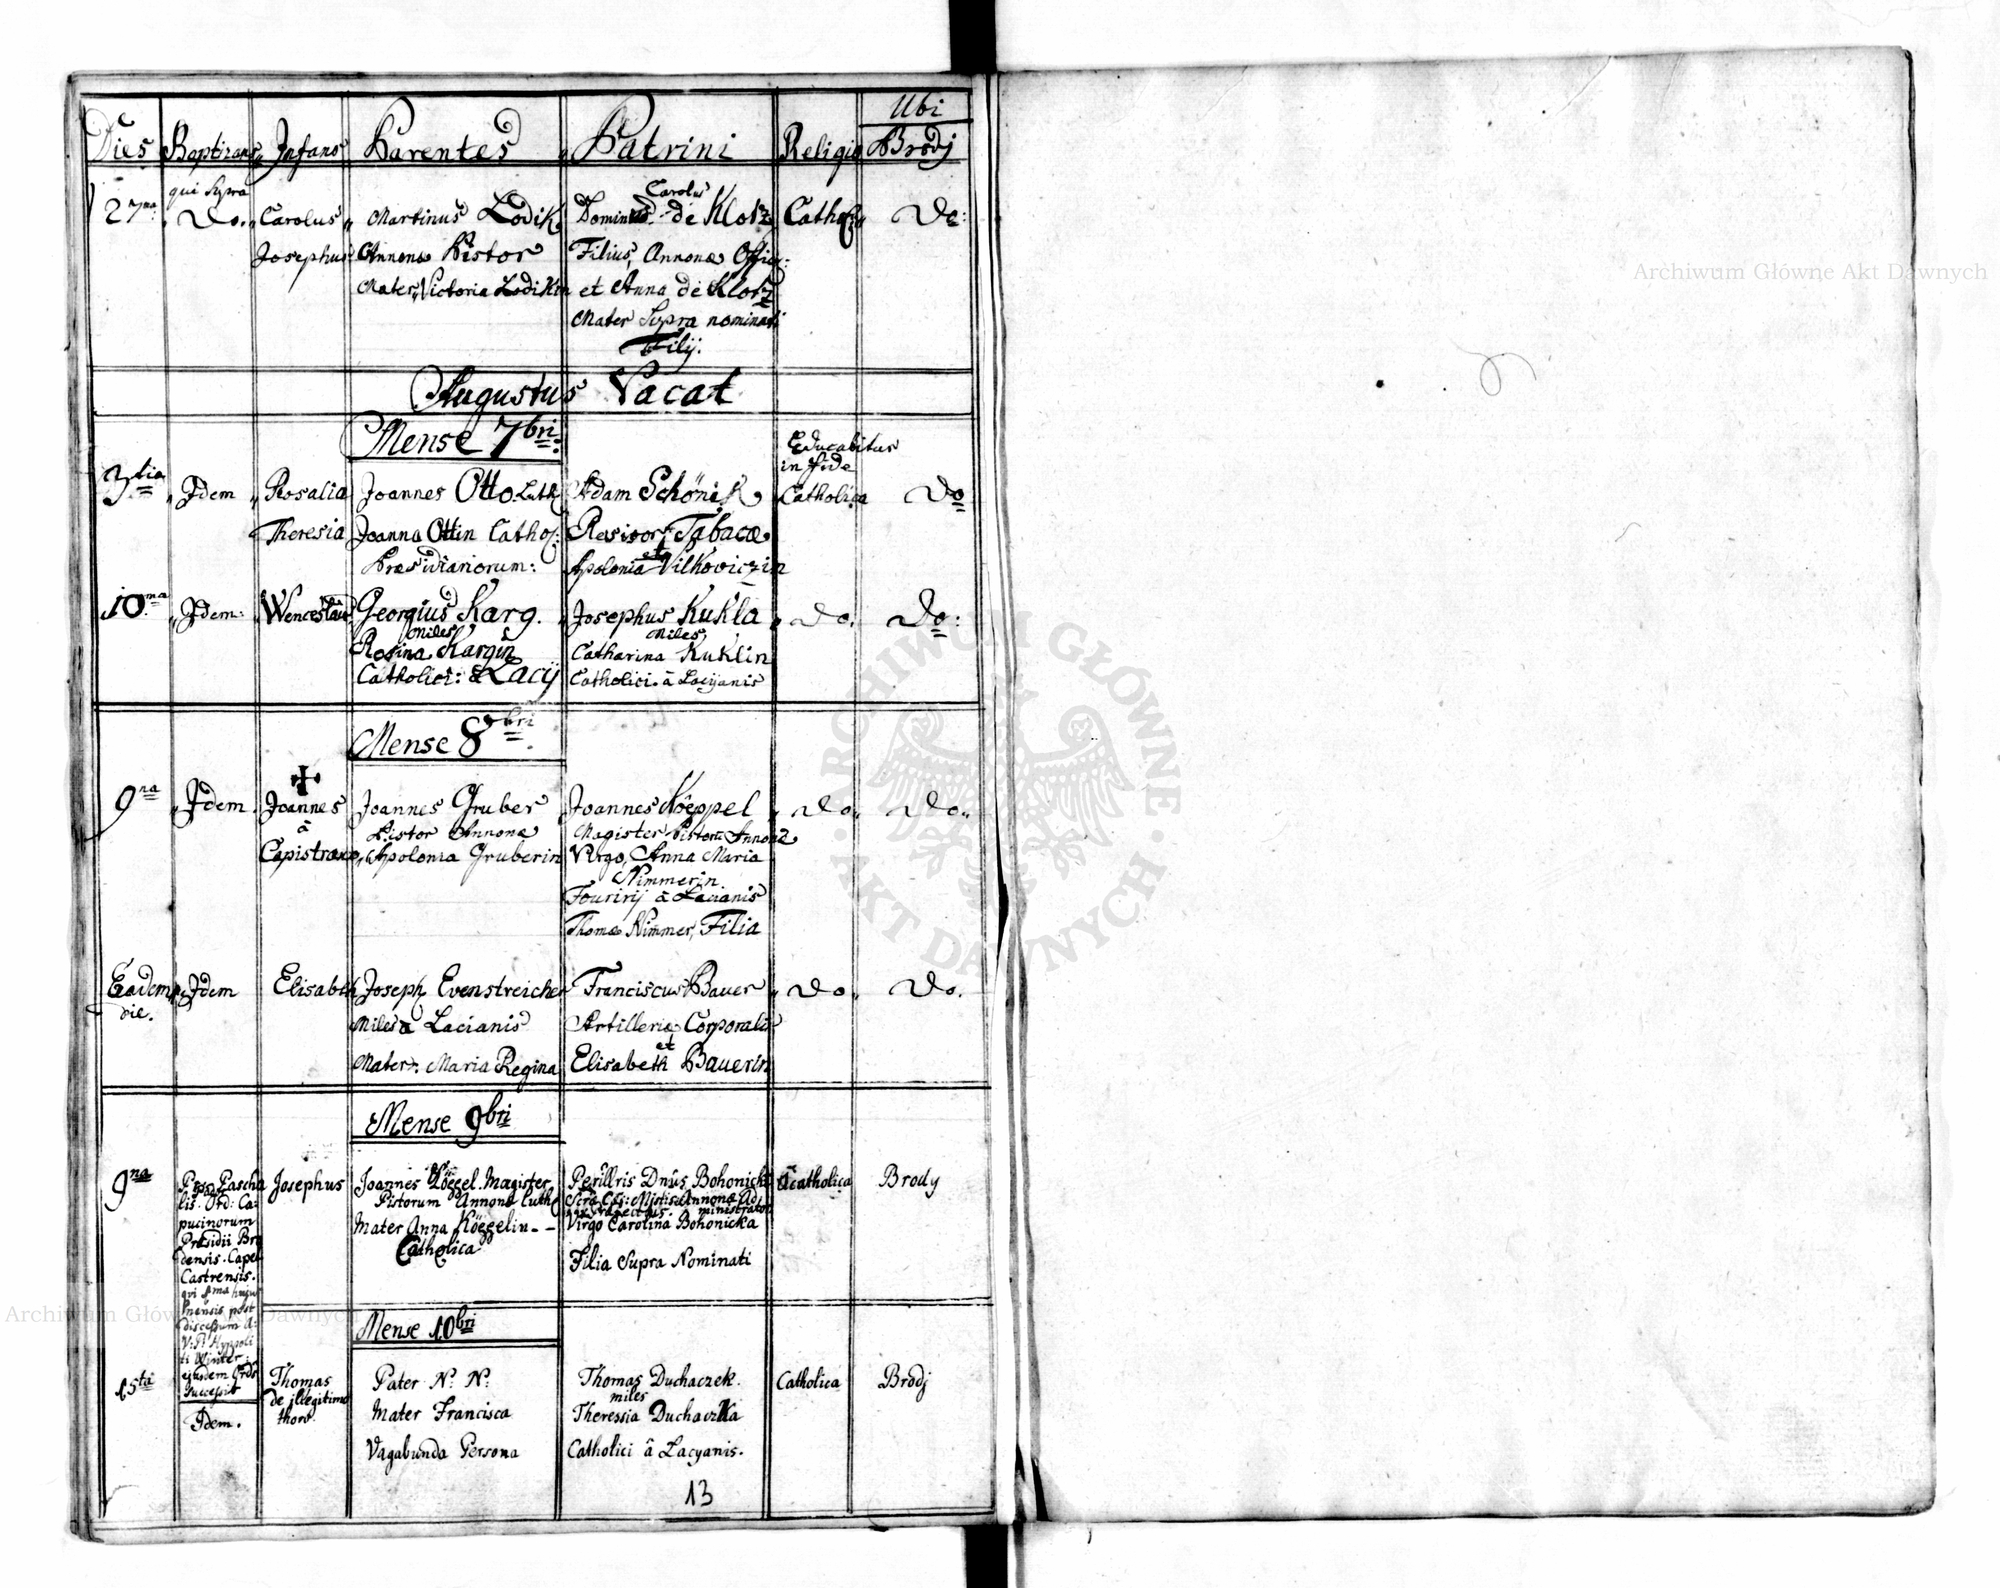 Ubi
Dies Baptizans Infans Parentes Patrini Religio Brodj
qui Supra Carolus
27ma Do. Carolus Martinus Lodik Dominus de Klotz Cathol: Do:
Josephus Annonæ Pistor Filius, Annonæ Offici:
Mater Victoria Lodikin et Anna de Klotz
Mater Supra nominati
Filij.
Augustus Vacat
Mense 7bri.
Educabitur
in fide
3tia Idem Rosalia Joannes Otto Luth Adam Schönik Catholica Do
Theresia Joanna Ottin Cathol: Revisor Tabacæ
et
Præsidiariorum: Apolonia Vilkoviczin
10ma Idem: Wenceslaus Georgius Karg. Josephus Kukla Do. Do:
Miles Miles
Rosina Kargin Catharina Kuklin
Catholici: à Lacij Catholici à Lacijanis
Mense 8bri.
9na Idem Joannes Joannes Gruber Joannes Köppel Do. Do.
à Pistor Annonæ Magister Pistorū Annonæ
Capistrano Apolonia Gruberin Virgo, Anna Maria
Nimmerin
Fouririj à Lacianis
Thomæ Nimmer, Filia
Eadem Idem Elisabeth Joseph Evenstreicher Franciscus Bauer Do. Do.
die. Miles à Lacianis Artilleriæ Corporalis
et
Mater. Maria Regina Elisabeth Bauerin
Mense 9bri
9na Pascha Josephus Joannes Köggel Magister Perillris Dnūs Bohonicki Acatholica Brody
lis Ord: Ca- Pistorum Annonæ Luth Annonæ Ad-
pucinorum ministrator
Præsidii Bro Mater Anna Köegelin - - Virgo Carolina Bohonicka
densis. Capel Catholica
Castrensis. Filia Supra Nominati
qui
mensis post
discessum A:
V: P: Hyppoli
ti Winter
ejusdem Ord:
successit
Mense 10bri
15ta Idem. Thomas Pater N: N: Thomas Duchaczek. Catholica Brodj
de illegitimo miles
thoro Mater Francisca Theressia Duchaczka
Vagabunda Persona Catholici à Lacyanis.
13
Archiwum Główne Akt Dawnych
Archiwum Główne Akt Dawnych
ARCHIWUM GŁÓWNE AKT DAWNYCH